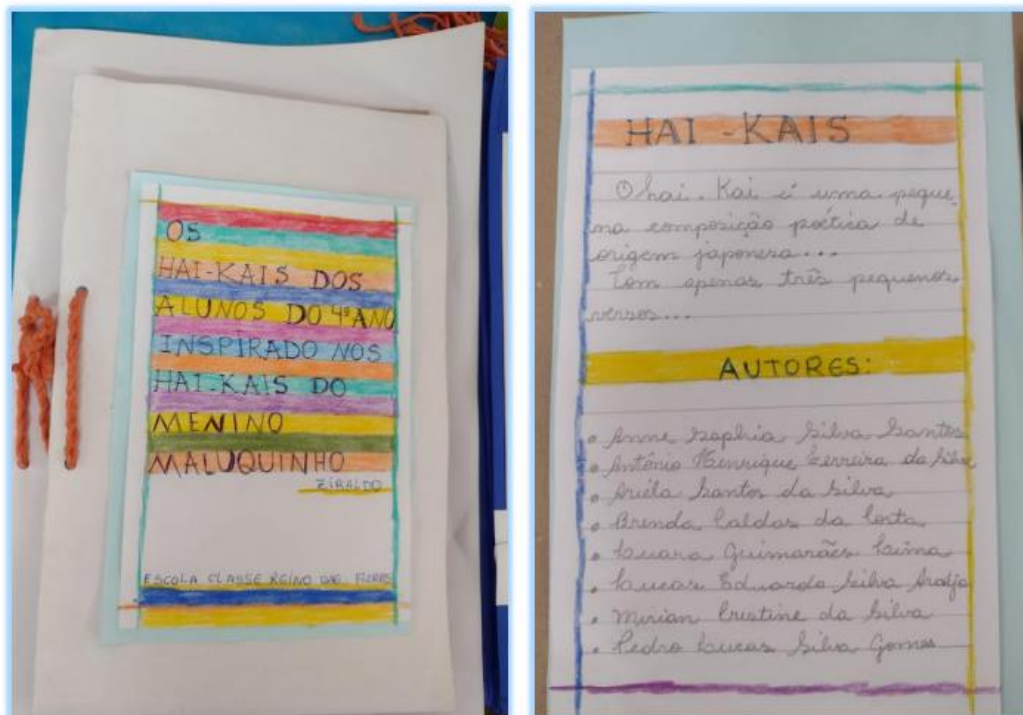 OS
HAI-KAIS DOS
ALUNOS DO 4º ANO
INSPIRADO NOS
HAI-KAIS DO
MENINO
MALUQUINHO
ZIRALDO
ESCOLA CLASSE REINO DAS FLORES
HAI-KAIS
O hai-Kai é uma peque
na composição poética de
origem japonesa...
Tem apenas três pequenos
versos...
AUTORES:
• Anne Sophia Silva Santos
• Antônio Henrique Ferreira da Silva
• Ariéla Santos da Silva
• Brenda Caldas da Costa
• Luara Guimarães Lima
• Lucas Eduardo Silva Araújo
• Mirian Cristine da Silva
• Pedro Lucas Silva Gomes